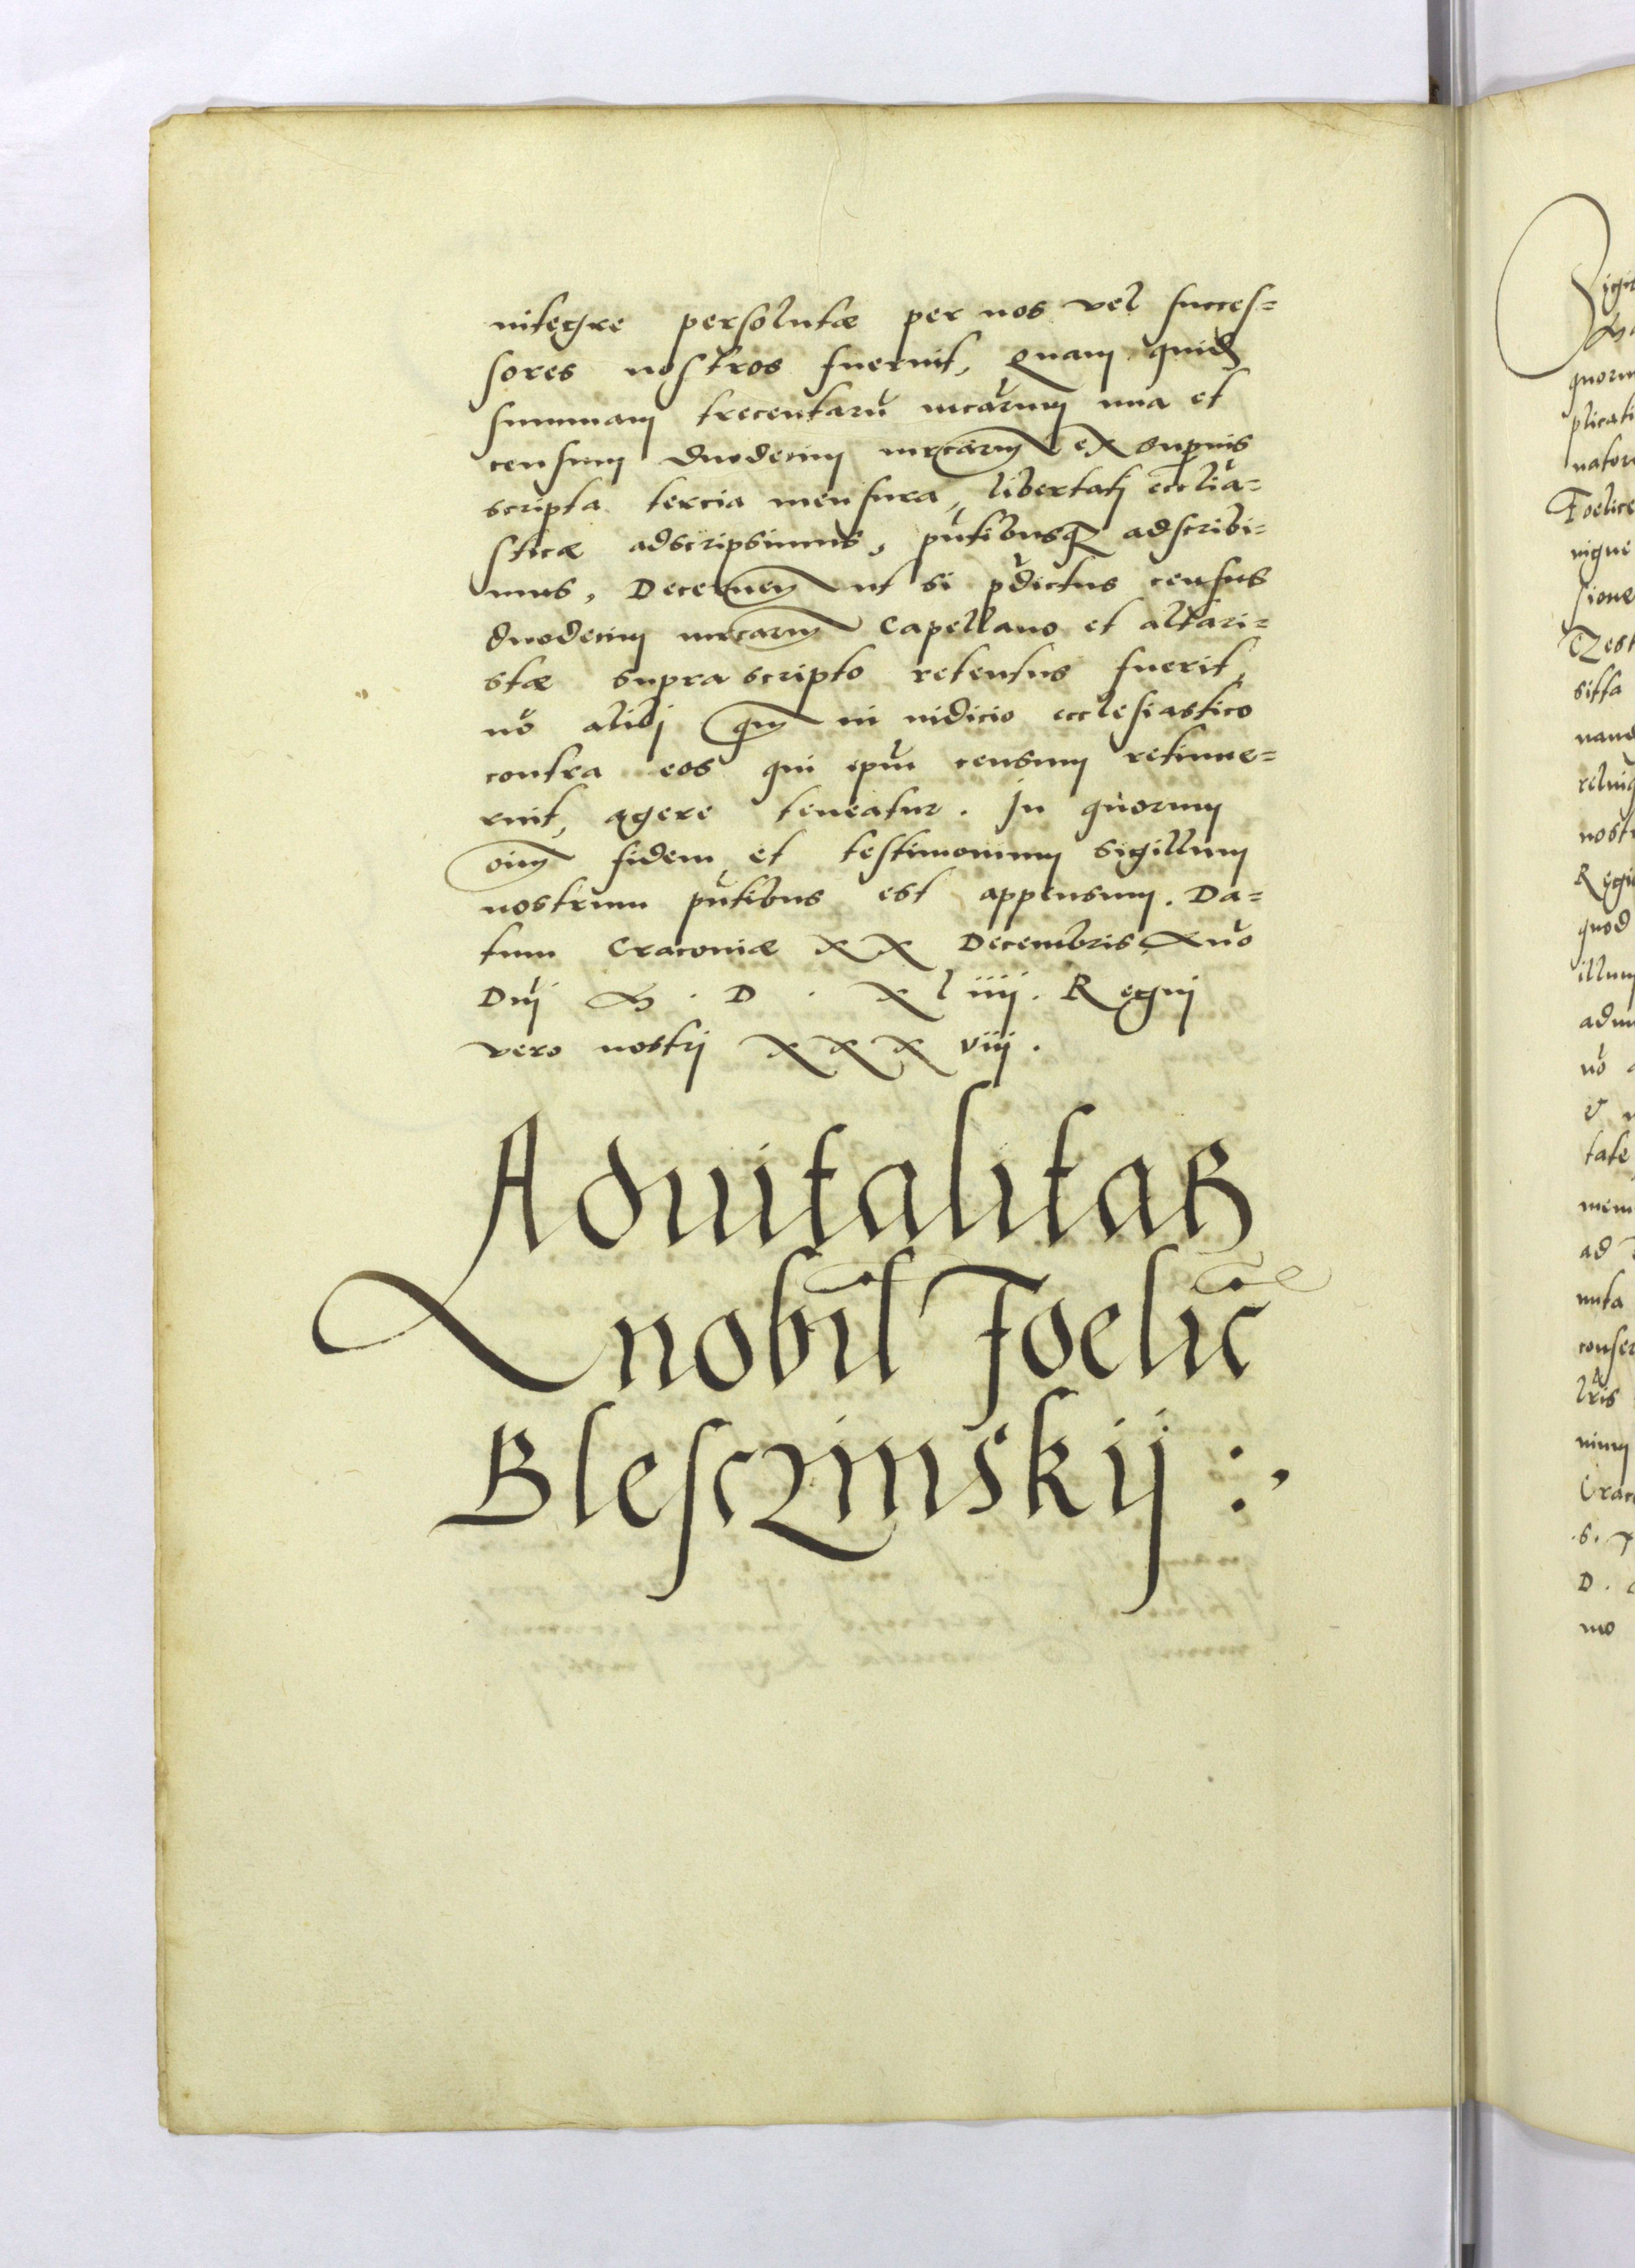 integre persolutæ per nos vel succes=
sores nostros fuerint, Quam quid
summam trecentarũ mcarum una et
censum duodecim mrcarum ex suprius
scripta tercia mensura, libertati eccliã=
sticæ adscripsimus, pñtibusq adscribi=
mus, Decernen ut si pdictus census
duodecim mrcarum Capellano et altari=
stæ supra scripto retentus fuerit,
nõ alibi qm in iudicio ecclesiastico
contra eos qui ipm censum retinue=
rint, agere teneatur. In quorum
oim fidem et testimonium sigillum
nostrum pñtibus est appensum. Da=
tum Cracoviæ XX Decembris Año
Dni M. D. Xliiii. Regni
vero nostri XXX viii.
Aduitalitas
nobil Foelic
Blesczinskij :,
Foelice
nigue
sione
Test
sitta
nand
nostr
Regi
quod
illum
nõ
tate
ad
nuta
conser
lris
Crac
.S.
D.
mo